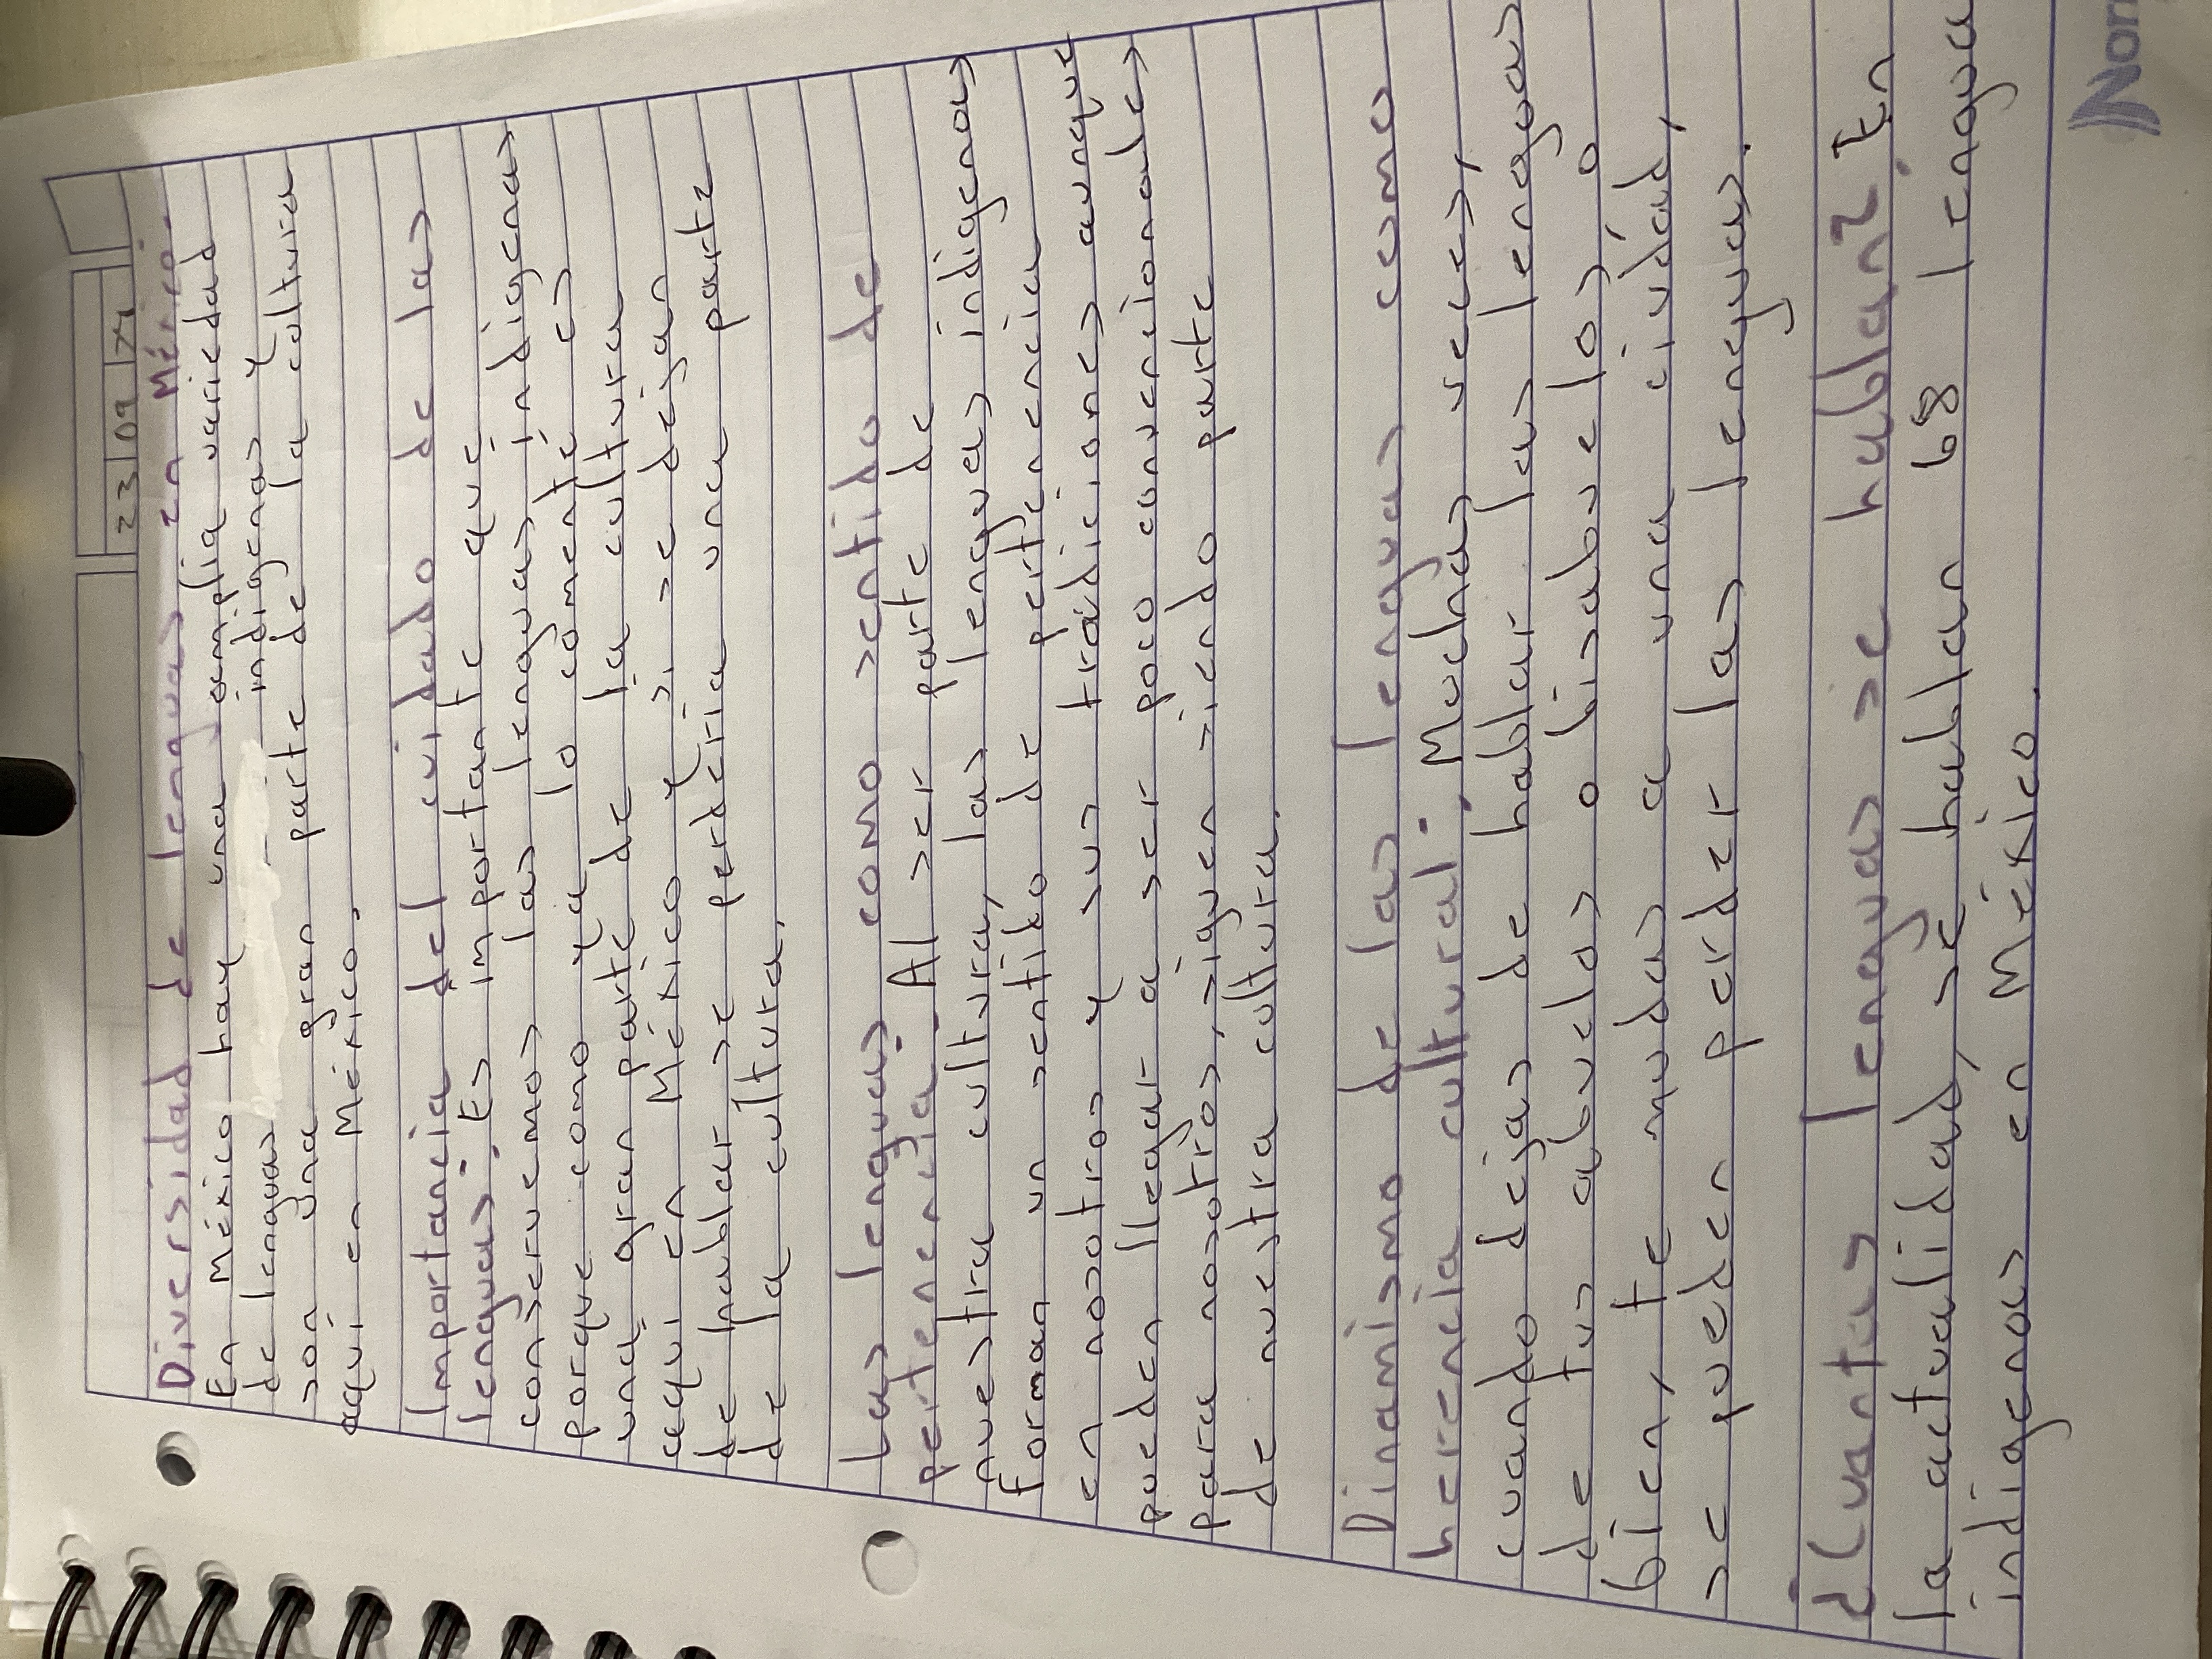 23 09 24
Diversidad de lenguas en México.
En México hay una amplia variedad
de lenguas indigenas y
son una gran parte de la cultura
aqui en México.
Importancia del cuidado de las
lenguas. Es importante que
conservemos las lenguas indigenas
porque como ya lo comenté es
una gran parte de la cultura
aqui en México y si se dejan
de hablar se perderia una parte
de la cultura.
Las lenguas como sentido de
pertenencia. Al ser parte de
nuestra cultura, las lenguas indigenas
forman un sentido de pertenencia
en nosotros y sus tradiciones aunque
puedan llegar a ser poco convencionales
para nosotros, siguen siendo parte
de nuestra cultura.
Dinamismo de las lenguas como
herencia cultural. Muchas veces,
cuando dejas de hablar las lenguas
de tus abuelos o bisabuelos o
bien, te mudas a una ciudad,
se pueden perder las lenguas.
¿Cuantas lenguas se hablan? En
la actualidad, se hablan 68 lenguas
indigenas en México.
Nor